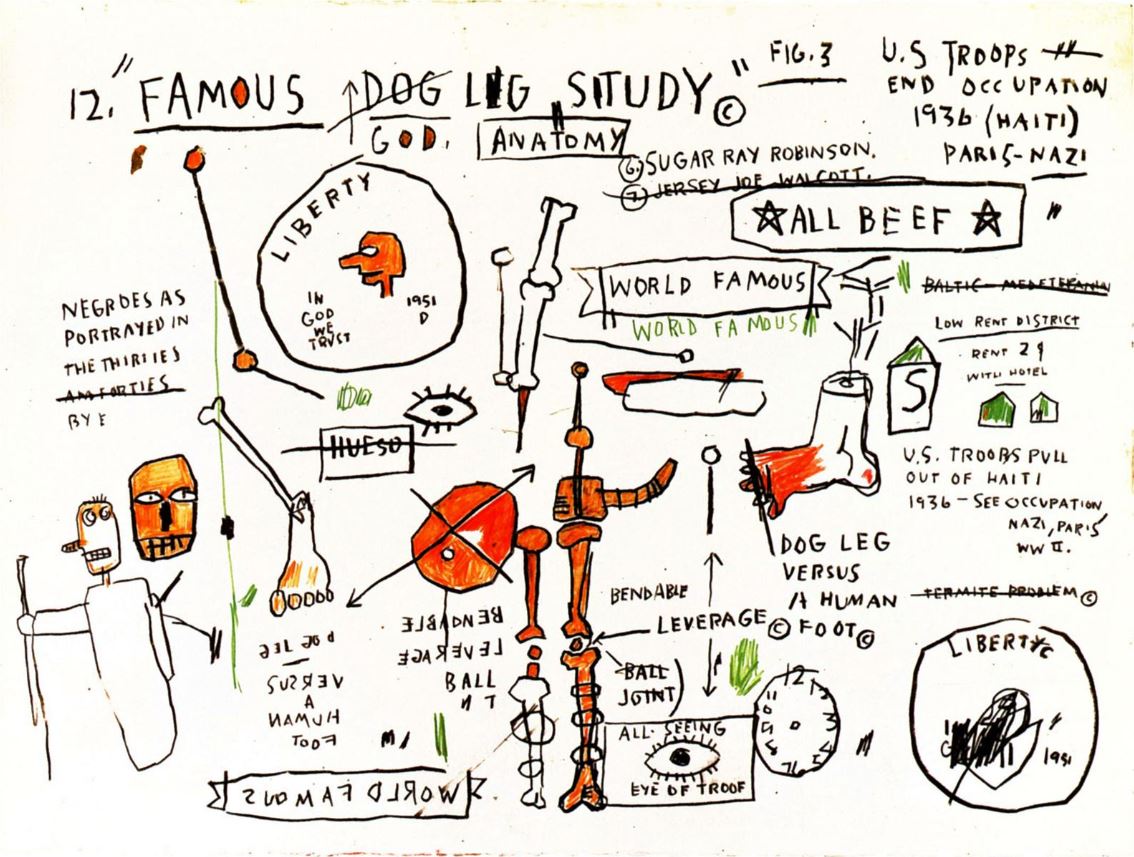 12. "FAMOUS DOG LEG STUDY" ©
FIG. 3
GOD.
ANATOMY
U.S TROOPS
END OCCUPATION
1936 (HAITI)
PARIS-NAZI
6. SUGAR RAY ROBINSON.
7. JERSEY JOE WALCOTT.
ALL BEEF
LIBERTY
IN
GOD
WE
TRUST
1951
D
WORLD FAMOUS
WORLD FAMOUS
NEGROES AS
PORTRAYED IN
THE THIRTIES
AN FORTIES
BY E
LOW RENT DISTRICT
RENT 2 9
WITH HOTEL
S
HUESO
U.S. TROOPS PULL
OUT OF HAITI
1936 - SEE OCCUPATION
NAZI, PARIS
WW II.
DOG LEG
VERSUS
A HUMAN
FOOT ©
BENDABLE
LEVERAGE ©
BALL
JOINT)
TERMITE PROBLEM ©
BENDABLE
LEVERAGE
BALL
N T
DOG LEG
VERSUS
A
HUMAN
FOOT
ALL-SEEING
EYE OF TROOF
12
LIBERTY
1951
WORLD FAMOUS